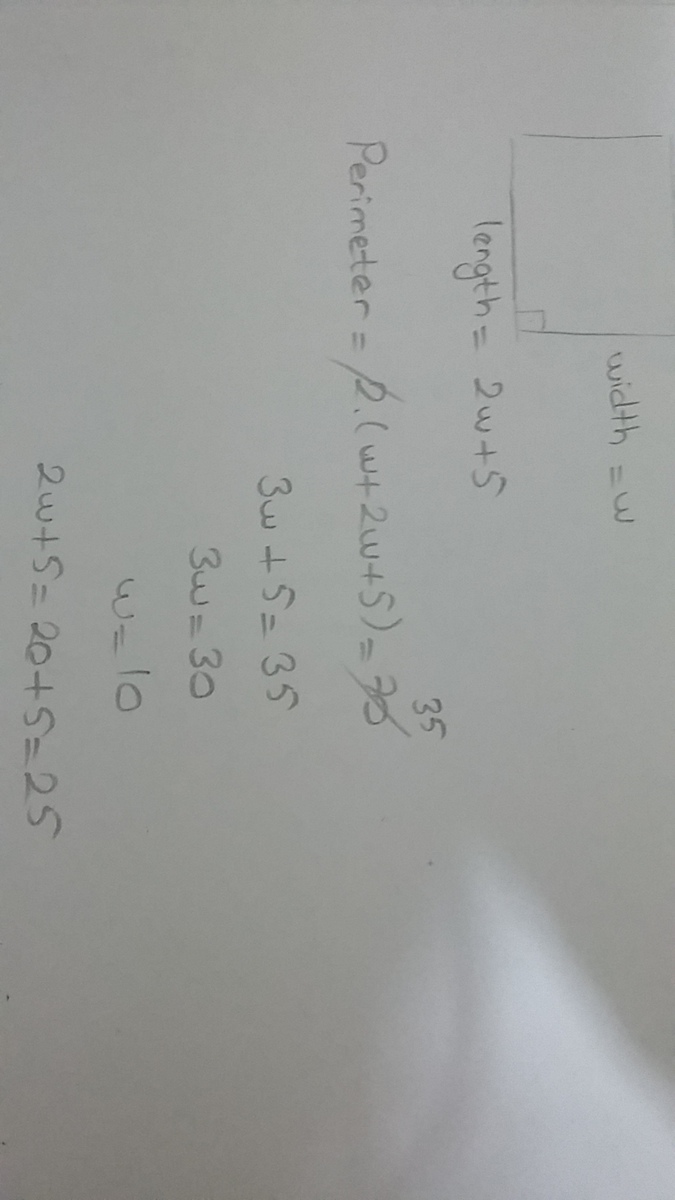 width = w
length = 2w + 5
35
Perimeter = 2.(w + 2w + 5) = 70
3w + 5 = 35
3w = 30
w = 10
2w + 5 = 20 + 5 = 25